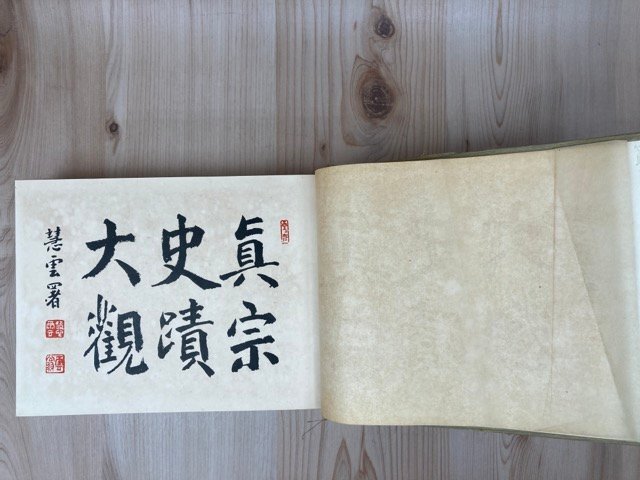 眞宗
史蹟
大觀
慧雲署